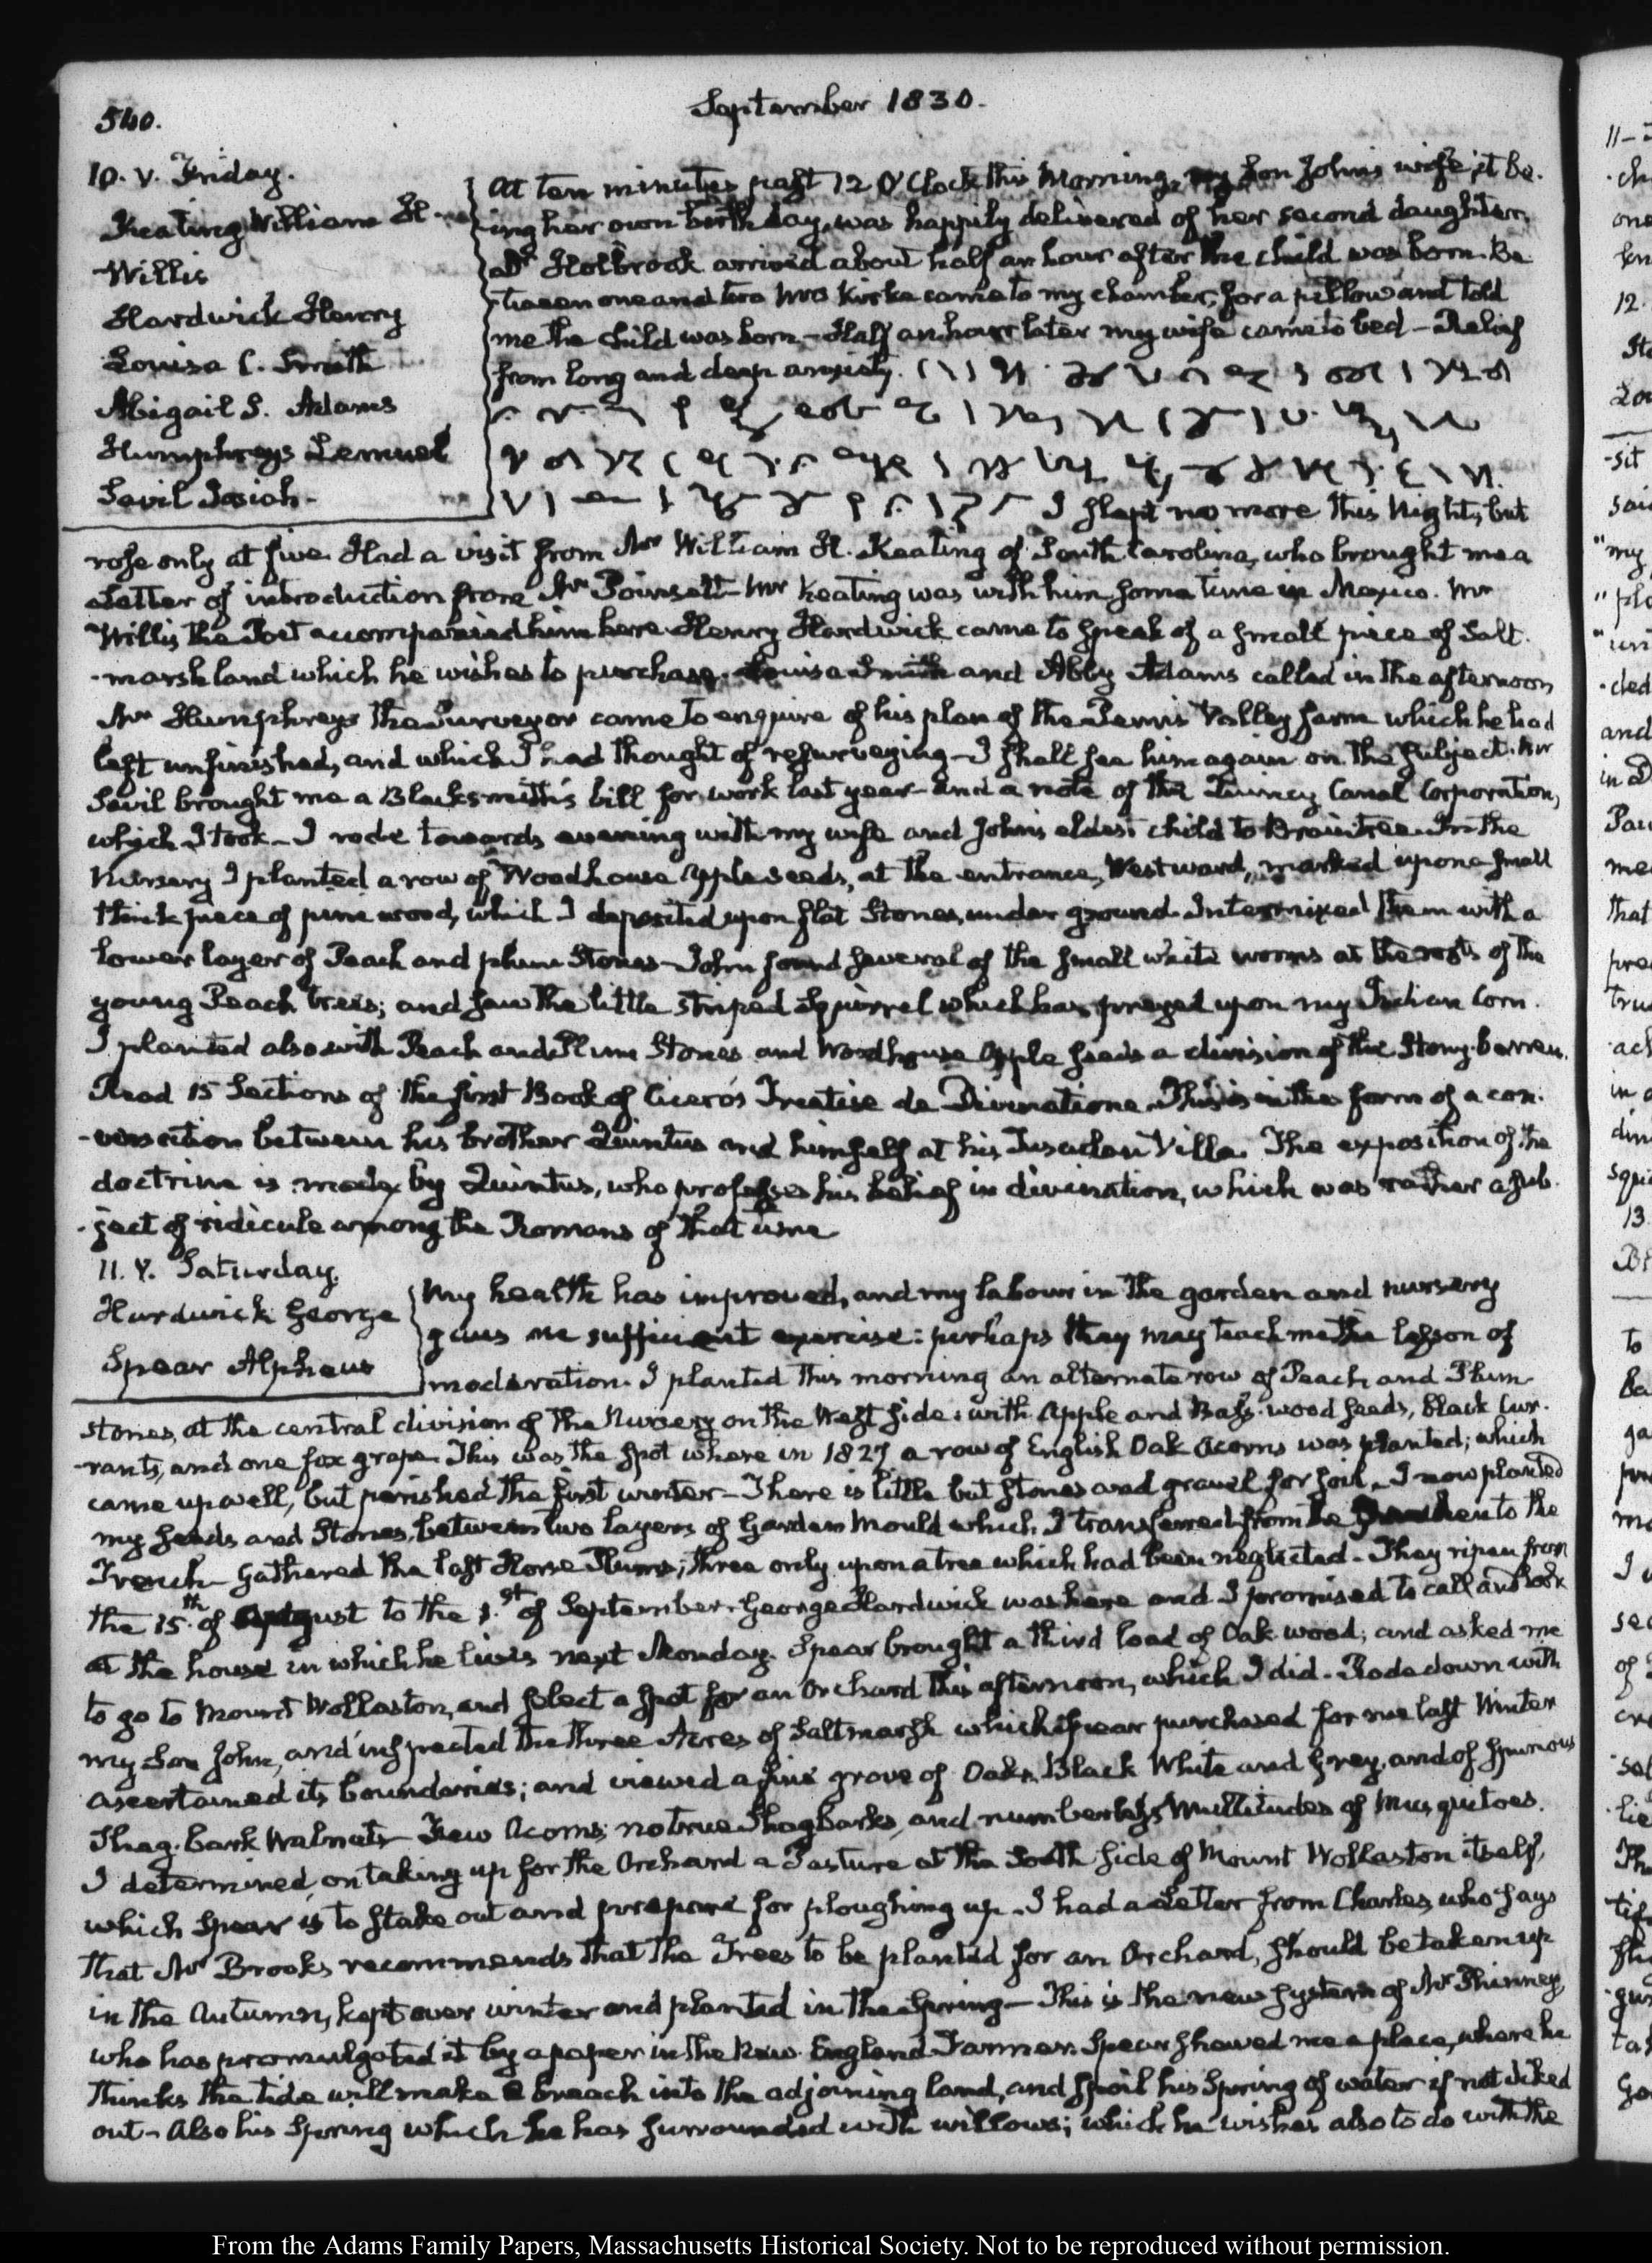 540.
September 1830.
10. V. Friday.
Keating William H.
Willis
Hardwick Henry
Louisa C. Smith
Abigail S. Adams
Humphreys Lemuel
Savil Josiah
At ten minutes past 12 O'Clock this Morning, my Son John's wife, it be-
ing her own birth day, was happily delivered of her second daughter.
Dr Holbrook arrived about half an hour after the child was born. Be
tween one and two Mrs Kirke came to my chamber, for a pillow and told
me the child was born – Half an hour later my wife came to bed – Relief
from long and deep anxiety.
I slept no more this Night, but
rose only at five. Had a visit from Mr William H. Keating of South Carolina, who brought me a
Letter of introduction from Mr Poinsett – Mr Keating was with him some time in Mexico. Mr
Willis the Poet accompanied him here. Henry Hardwick came to speak of a small piece of Salt
marsh land which he wishes to purchase. Louisa Smith and Abby Adams called in the afternoon
Mr Humphreys the Surveyor came to enquire of his plan of the Penns Valley farm which he had
left unfinished, and which I had thought of resurveying – I shall see him again on the subject. Mr
Savil brought me a Blacksmith's bill for work last year and a note of the Quincy Canal Corporation,
which I took – I rode towards evening with my wife and John's eldest child to Braintree. In the
Nursery I planted a row of Woodhouse apple seeds, at the entrance, Westward, marked upon a small
thick piece of pine wood, which I deposited upon flat Stones, under ground. Intermixed them with a
lower layer of Peach and plum Stones – John found several of the small white worms at the roots of the
young Peach trees; and saw the little striped Squirrel which has preyed upon my Indian Corn.
I planted also with Peach and Plum Stones and Woodhouse Apple seeds a division of the Stony-barren.
Read 15 Sections of the first Book of Cicero's Treatise de Divinatione. This is in the form of a con-
-versation between his brother Quintus and himself at his Tusculan Villa. The exposition of the
doctrine is made by Quintus, who professes his belief in divination, which was rather a sub-
-ject of ridicule among the Romans of that time
11. V. Saturday.
Hardwick George
Spear Alpheus
My health has improved, and my labour in the garden and nursery
gives me sufficient exercise: perhaps they may teach me the lesson of
moderation. I planted this morning an alternate row of Peach and Plum
stones, at the central division of the Nursery on the West side: with Apple and Bass-wood seeds, black Cur-
-rants, and one fox grape. This was the spot where in 1827 a row of English Oak Acorns was planted; which
came up well, but perished the first winter – There is little but stones and gravel for soil. I now planted
my seeds and Stones, between two layers of Garden Mould which I transferred from the to the
Trench – Gathered the last Horse Plums; three only upon a tree which had been neglected – They ripen from
the 15th of August to the 1st of September. George Hardwick was here and I promised to call and look
at the house in which he lives next Monday. Spear brought a third load of Oak wood; and asked me
to go to Mount Wollaston, and select a spot for an Orchard this afternoon, which I did. Rode down with
my Son John, and inspected the three Acres of Saltmarsh which Spear purchased for me last Winter
ascertained its boundaries; and viewed a fine grove of Oaks. Black White and Grey, and of spurious
Shag-bark Walnuts – Few Acorns; no true Shagbarks, and numberless multitudes of Musquitoes.
I determined on taking up for the Orchard a Pasture at the South side of Mount Wollaston itself,
which Spear is to stake out and prepare for ploughing up. I had a Letter from Charles who says
that Mr Brooks recommends that the Trees to be planted for an Orchard, should be taken up
in the Autumn, kept over winter and planted in the Spring – This is the new system of Mr Phinney,
who has promulgated it by a paper in the New England Farmer. Spear showed me a place, where he
thinks the tide will make a breach into the adjoining land, and spoil his Spring of water if not diked
out – Also his Spring which he has surrounded with willows; which he wishes also to do with the
From the Adams Family Papers, Massachusetts Historical Society. Not to be reproduced without permission.